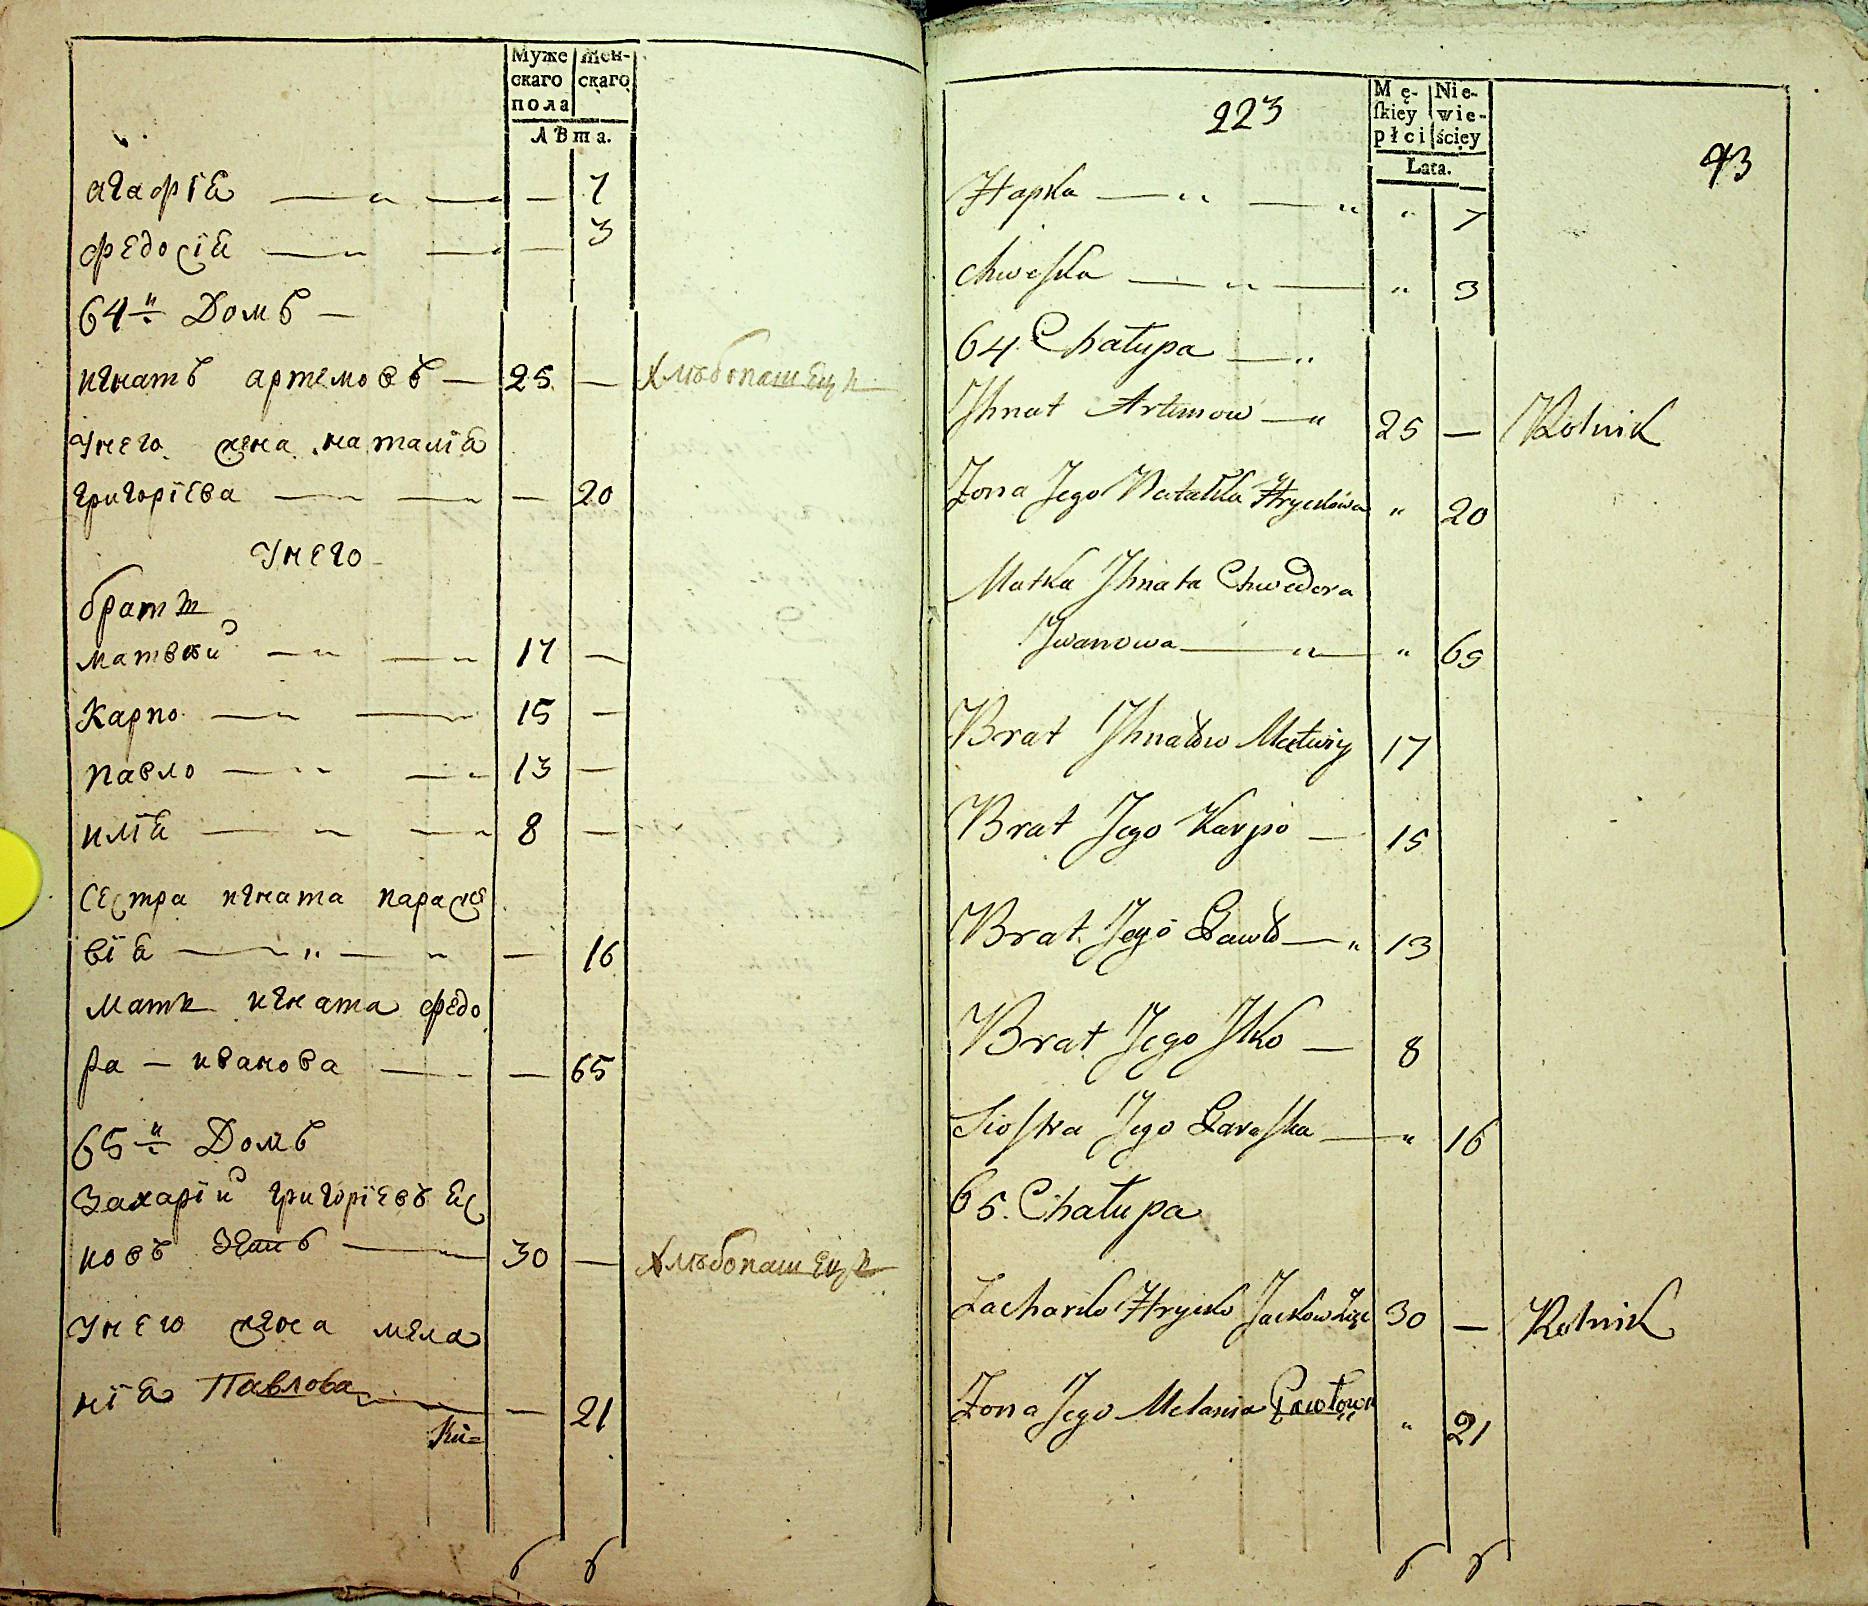 Муже
скаго
пола
жен-
скаго
лѣта.
агафїя — " — — 7
федосїя — " — — 3
64й Домъ —
игнатъ артемовъ — 25 — хлѣбопашецъ
Унего жена наталїя
григорїева — — — 20
Унего
братья
матвѣй — " — " 17 —
Карпо — " — 15 —
павло — " — " 13 —
илїя — " — " 8 —
Сестра игната параске
вїя — " — " — 16
мати игната федо
ра — иванова — — 65
65й Домъ
Захарїй григорїевъ яс
ковъ зять — 30 — хлѣбопашецъ
Унего жена мела
нїя Павлова — — 21
6 6
223
Mę-
ſkiey
płci
Nie-
wie-
ściey
Lata.
93
Hapka — " — " " 7
Chweſka — " — " 3
64. Chałupa — "
Jhnat Artemow — " 25 — Rolnik
Zona Jego Natalka Hryckowa " 20
Matka Jhnata Chwedora
Jwanowa — " — " 65
Brat Jhnatow Matwiy 17
Brat Jego Karpo — 15
Brat Jego Pawło — " 13
Brat Jego Jlko — 8
Siostra Jego Paraſka — " 16
65. Chałupa
Zacharko Hrycko Jackow Zięć 30 — Rolnik
Zona Jego Melania Pawłowa " 21
6 6